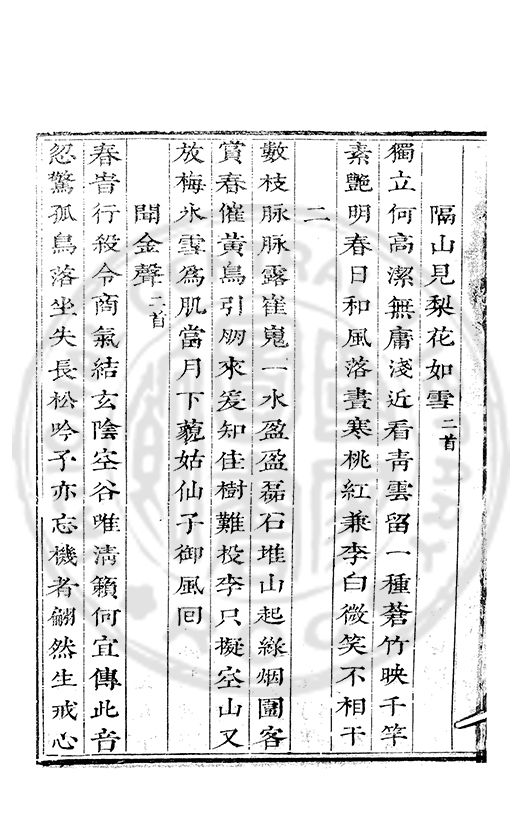 隔山見梨花如雪二首
獨立何高潔無庸淺近看青雲留一種蒼竹映千竿
素艷明春日和風落晝寒桃紅兼李白微笑不相干
二
數枝脉脉露崔嵬一水盈盈磊石堆山起綠烟圍客
賞春催黃鳥引朋來爰知佳樹難投李只擬空山又
放梅氷雪為肌當月下藐姑仙子御風回
聞金聲二首
春旹行殺令商氣結玄陰空谷唯清籟何宜傳此音
忽驚孤鳥落坐失長松吟予亦忘機者翩然生戒心